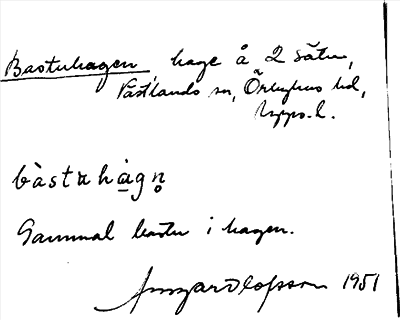 Bastuhagen, hage å 2 Sätra,
Västlands sn, Örbyhus hd,
Upps. l.
bàstuhàgn̥
Gammal bastu i hagen.
Ingvar Olofsson 1951